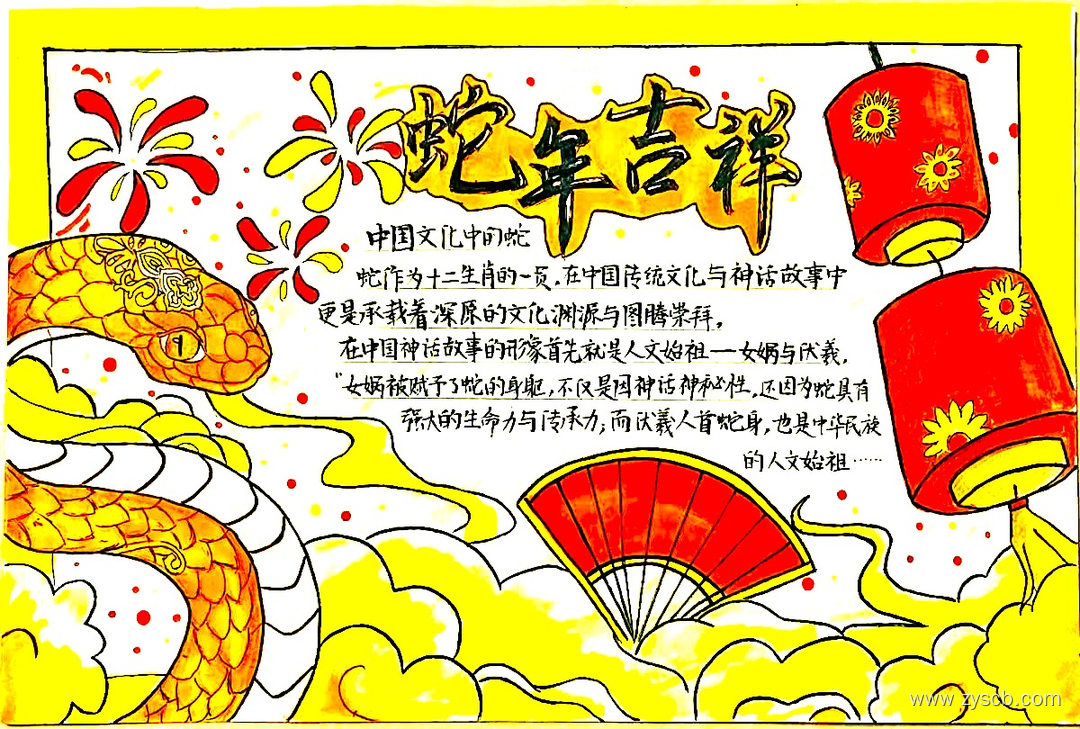 蛇年吉祥
中国文化中的蛇
蛇作为十二生肖的一员,在中国传统文化与神话故事中
更是承载着深原的文化渊源与图腾崇拜。
在中国神话故事的形象首先就是人文始祖——女娲与伏羲,
"女娲被赋予了蛇的身躯,不仅是因神话神秘性,还因为蛇具有
强大的生命力与传承力;而伏羲人首蛇身,也是中华民族
的人文始祖……
www.zyscb.com